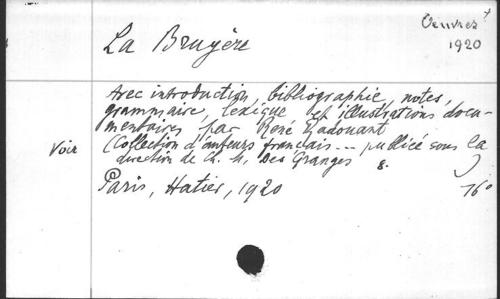 Oeuvres
1920
La Bruyère
Avec introduction, bibliographie, notes,
grammaire, lexique, et illustrations docu-
mentaires par René Radouant
Voir (Collection d'auteurs français ... publiée sous la
direction de Ch. M. Des Granges 8.)
Paris, Hatier, 1920 16°